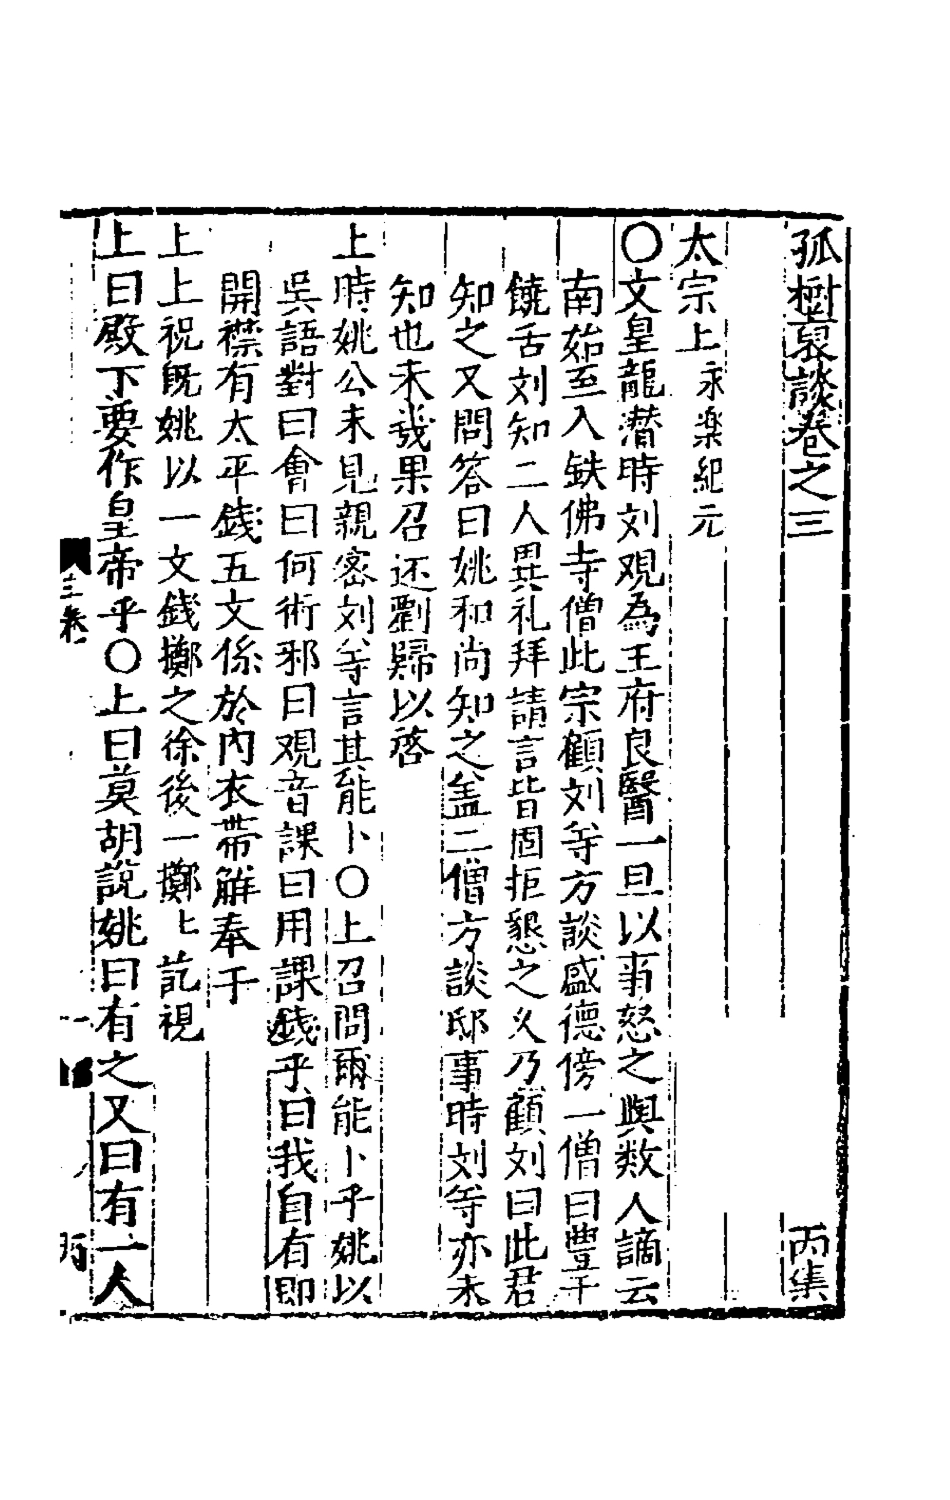 孤樹裒談卷之三 丙集
太宗上 永楽紀元
○文皇龍潜時刘观為王府良醫一旦以事怒之與数人謫云
南始至入鉄佛寺僧此宗顧刘等方談盛德傍一僧曰豐干
饒舌刘知二人異礼拜請言皆固拒懇之乆乃顧刘曰此君
知之又問答曰姚和尚知之盖二僧方談邸事時刘等亦未
知也未幾果召还劉歸以啓
上時姚公未見親密刘等言其能卜○上召問爾能卜乎姚以
吳語對曰會曰何術邪曰观音課曰用課銭乎曰我自有即
開襟有太平銭五文係於內衣帶觧奉于
上上祝既姚以一文銭擲之徐後一擲匕訖視
上曰殿下要作皇帝乎○上曰莫胡說姚曰有之又曰有一人
三卷
一
丙